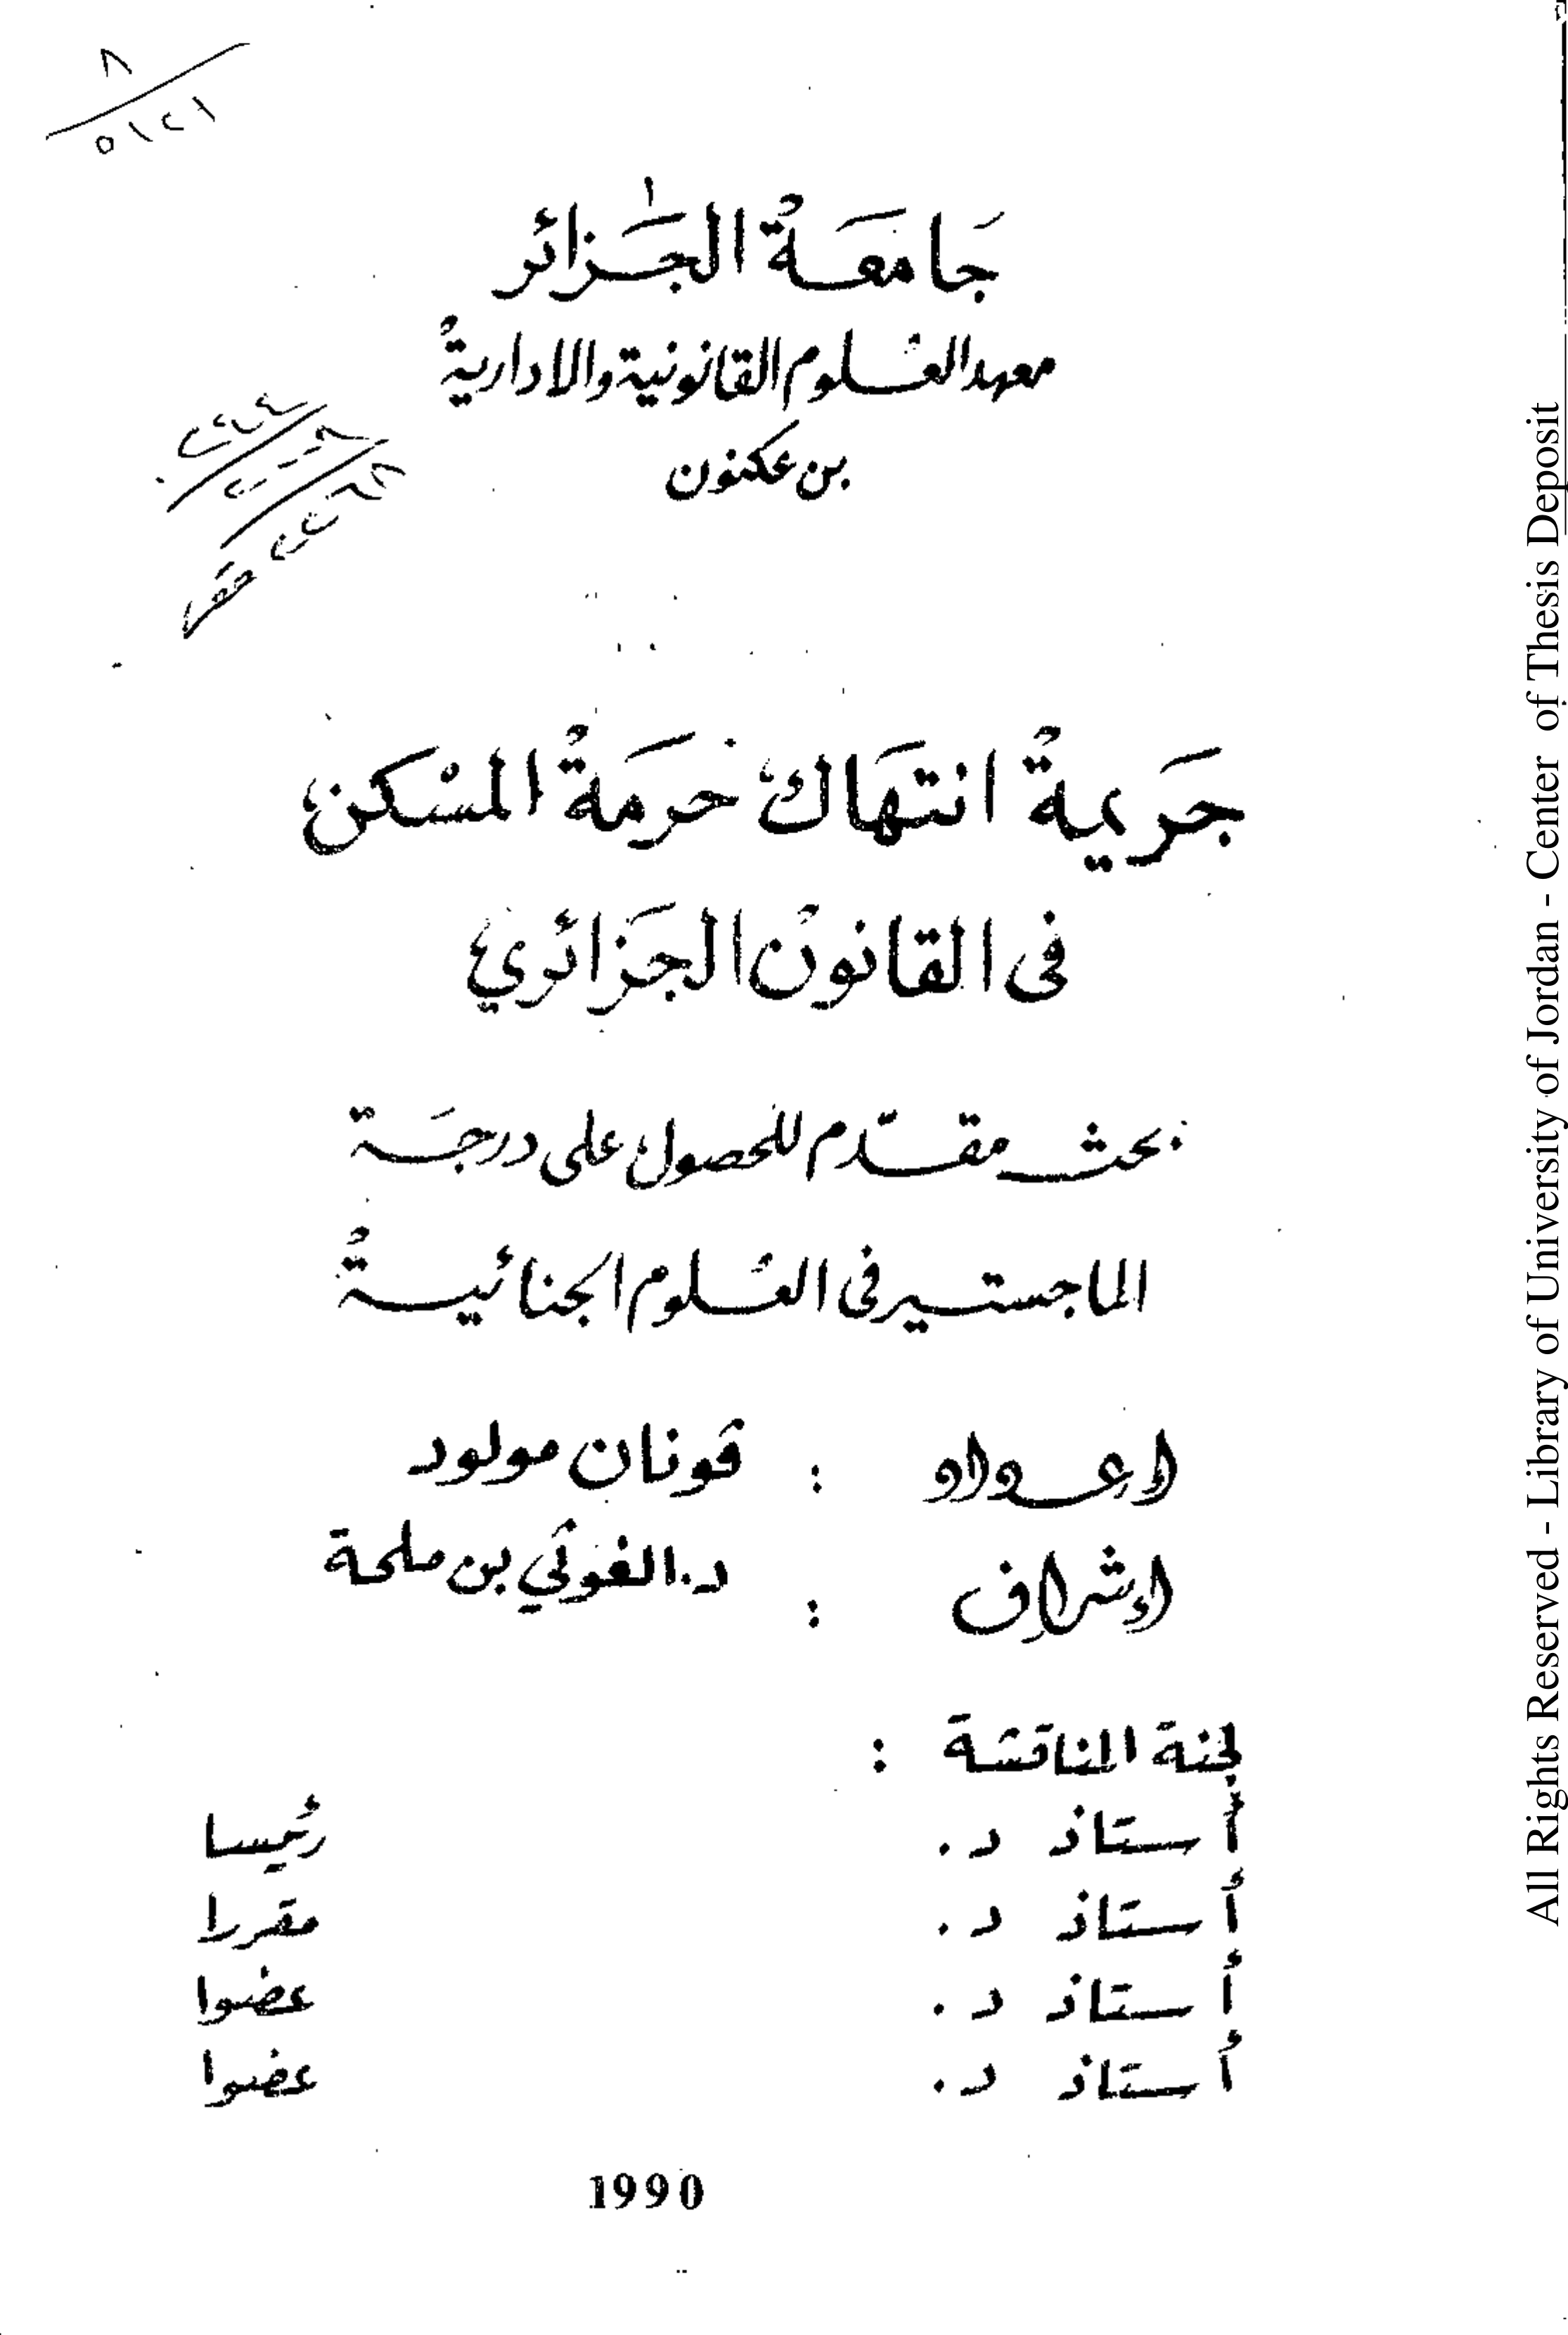 جَامعَةُ الجَزائر
معهد العُلوم القانونية والاداريةُ
بن عكنون
جَريمةُ انتهَاك حرمَةُ المسْكن
فى القانونْ الجَزائري
بحث مقدّم للحصول على درجَة
الماجستير فى العُلوم الجنائيةُ
إعداد : قونان مولود
إشراف : د. الغوثي بن ملحة
لجنة المناقشة :
أستاذ د. رئيسا
أستاذ د. مقررا
أستاذ د. عضوا
أستاذ د. عضوا
1990
All Rights Reserved - Library of University of Jordan - Center of Thesis Deposit